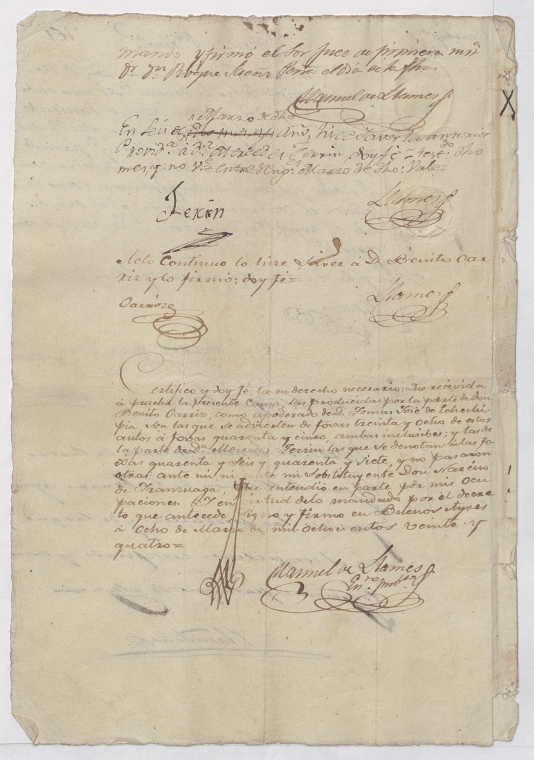 mandó y firmó el Sor Juez de primera inst.
D.r Dn Roque Saenz Peña el dia de la fha=
Manuel de Llames
Marzo de dho
En seis de año, hice saver la anterior
Provid.a à d.a Merced. Terrin, doy fé=
mes = no V.e entre reng.s Marzo de dho: Vale=
Terrin
Llames
Acto Continuo lo hice saver à D. Benito Oar
riz y lo firmó; doy fé=
Oarriz
Llames
Certifico y doy fé, la en derecho necesario: Que recivida
à prueba la presente Causa, las producidas por la parte de don
Benito Oarriz, como apoderado de d. Tomas José de
son las que se advierten de fojas treinta y ocho de estos
autos à fojas quarenta y cinco, ambas inclusives; y las de
la parte de da. Merced. Terrin las que se denotan à las fo
xas quarenta y seis y quarenta y siete, y no pasaron
otras ante mi ni ante mi sobstituyente Don Narciso
de Yranzuaga, que entendio en parte por mis ocu
paciones. Y en virtud de lo mandado por el decre
to que antecede signo y firmo en Buenos Ayres
à ocho de Marzo de mil ochocientos veinte y
quatro=
Manuel de Llames